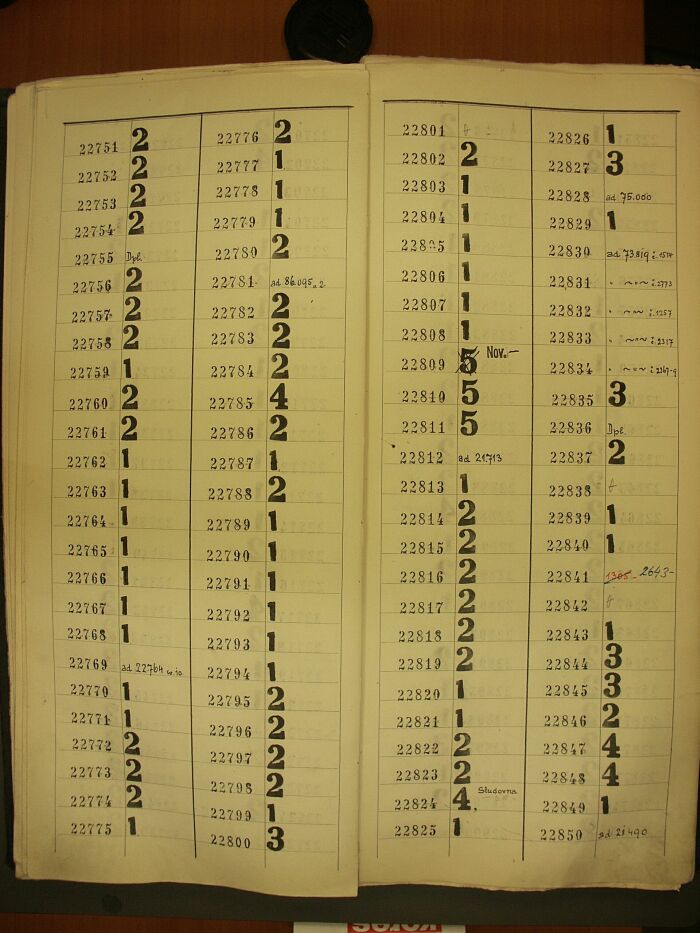 22751 2
22752 2
22753 2
22754 2
22755 Dpl.
22756 2
22757 2
22758 2
22759 1
22760 2
22761 2
22762 1
22763 1
22764 1
22765 1
22766 1
22767 1
22768 1
22769 ad 22764 w.io
22770 1
22771 1
22772 2
22773 2
22774 2
22775 1
22776 2
22777 1
22778 1
22779 1
22780 2
22781 ad 86.095
22782 2
22783 2
22784 2
22785 4
22786 2
22787 1
22788 2
22789 1
22790 1
22791 1
22792 1
22793 1
22794 1
22795 2
22796 2
22797 2
22798 2
22799 1
22800 3
22801
22802 2
22803 1
22804 1
22805 1
22806 1
22807 1
22808 1
22809 5 Nov.-
22810 5
22811 5
22812 ad 21.713
22813 1
22814 2
22815 2
22816 2
22817 2
22818 2
22819 2
22820 1
22821 1
22822 2
22823 2
22824 4. Studovna
22825 1
22826 1
22827 3
22828 ad 75.000
22829 1
22830 ad 73.819
22831
22832
22833
22834
22835 3
22836 Dpl.
22837 2
22838
22839 1
22840 1
22841 1305- 2643-
22842
22843 1
22844 3
22845 3
22846 2
22847 4
22848 4
22849 1
22850 ad 21490